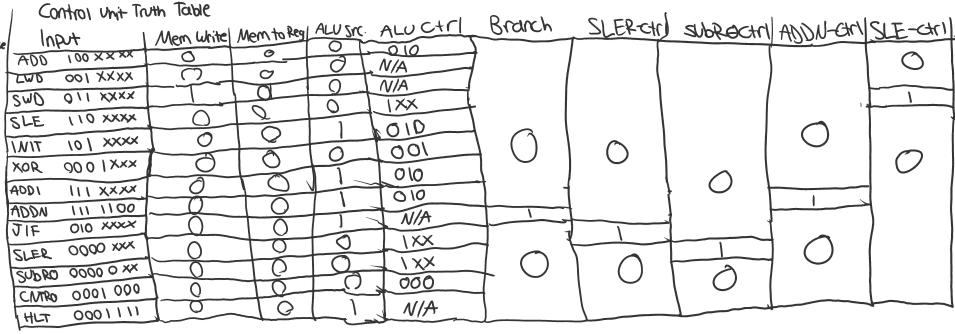 Control Unit Truth Table
Input Mem Write Mem to Reg ALU Src. ALU Ctrl Branch SLER-Ctrl SUBRO-Ctrl ADDN-Ctrl SLE-Ctrl
ADD 100 XXXX 0 0 0 010 0
LWD 001 XXXX 0 0 0 N/A
SWD 011 XXXX 1 0 0 N/A 1
SLE 110 XXXX 0 0 0 1XX
INIT 101 XXXX 0 0 1 010 0 0 0 0
XOR 0001XXX 0 0 0 001
ADDI 111 XXXX 0 0 1 010 0
ADDN 111 1100 0 0 1 010 1
JIF 010 XXXX 0 0 1 N/A 1
SLER 0000 XXX 0 0 0 1XX 1
SUBRO 0000 0 XX 0 0 0 1XX 0 0 1 0
CNTRO 0001 000 0 0 0 000 0
HLT 0001111 0 0 1 N/A